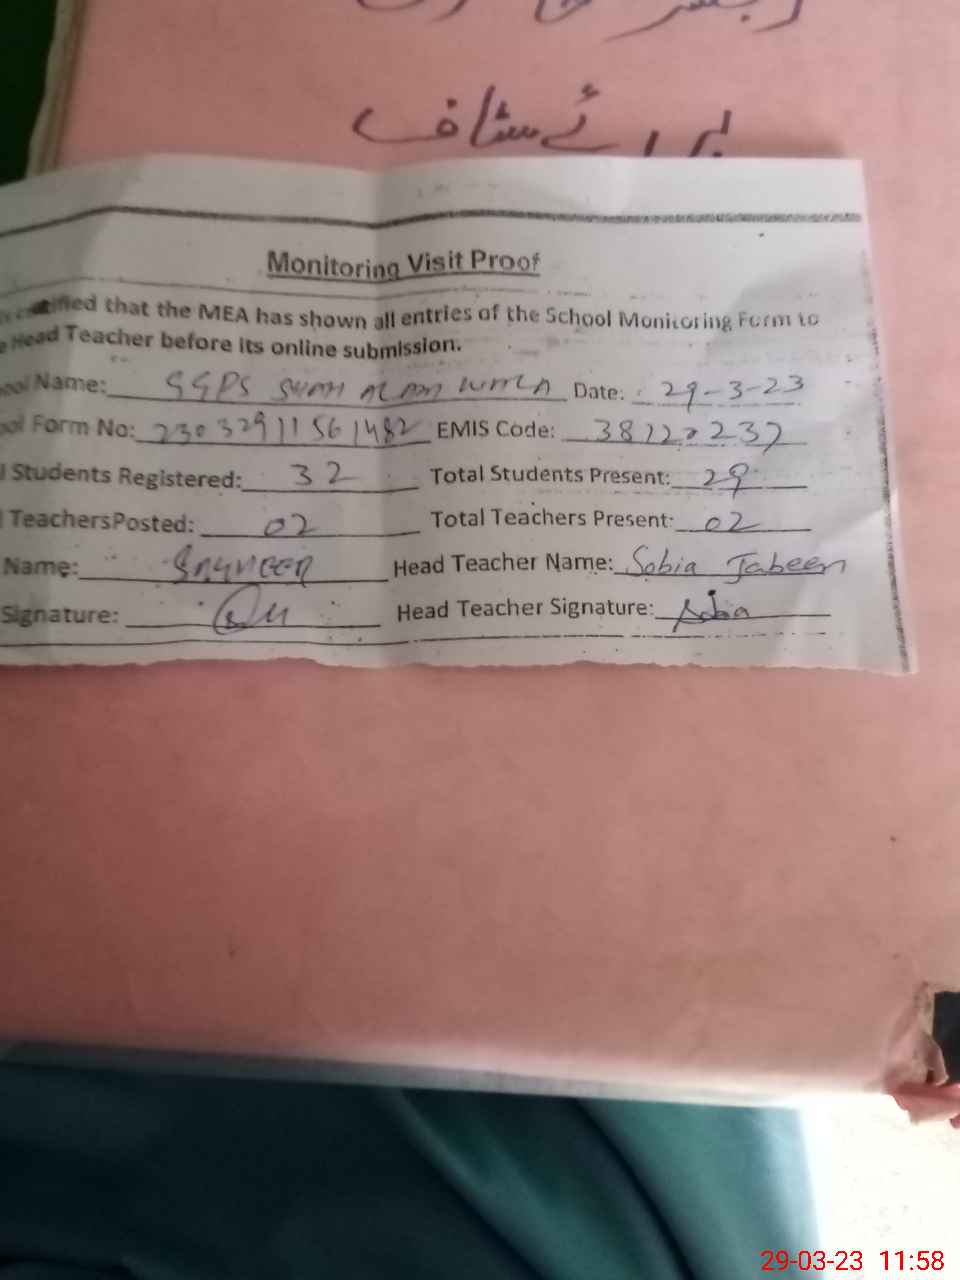 برائے سٹاف
Monitoring Visit Proof
that the MEA has shown all entries of the School Monitoring Form to
Head Teacher before its online submission.
Name: GGPS SHAH ALAM Date: 29-3-23
Form No: 230329115614 82 EMIS Code: 38120232
Students Registered: 32 Total Students Present: 29
TeachersPosted: 02 Total Teachers Present: 02
Name: Head Teacher Name: Sobia Jabeen
Signature: Head Teacher Signature: Sobia
29-03-23 11:58